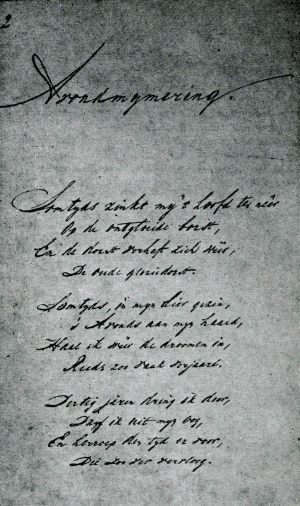 2
Avondmymering.
Somtyds zinkt my 't hoofd ter neêr
Op de ontgloeide borst,
En de dorst verheft zich weêr,
De oude gloriedorst.
Somtyds, in myn Lier gezin,
's Avonds aan myn haard,
Haal ik weêr de droomen in,
Reeds zoo vaak verjaard.
Dertig jaren dring ik door,
Daar ik uit myn oog,
En herroep den tyd er voor,
Die zoo der vervloog.